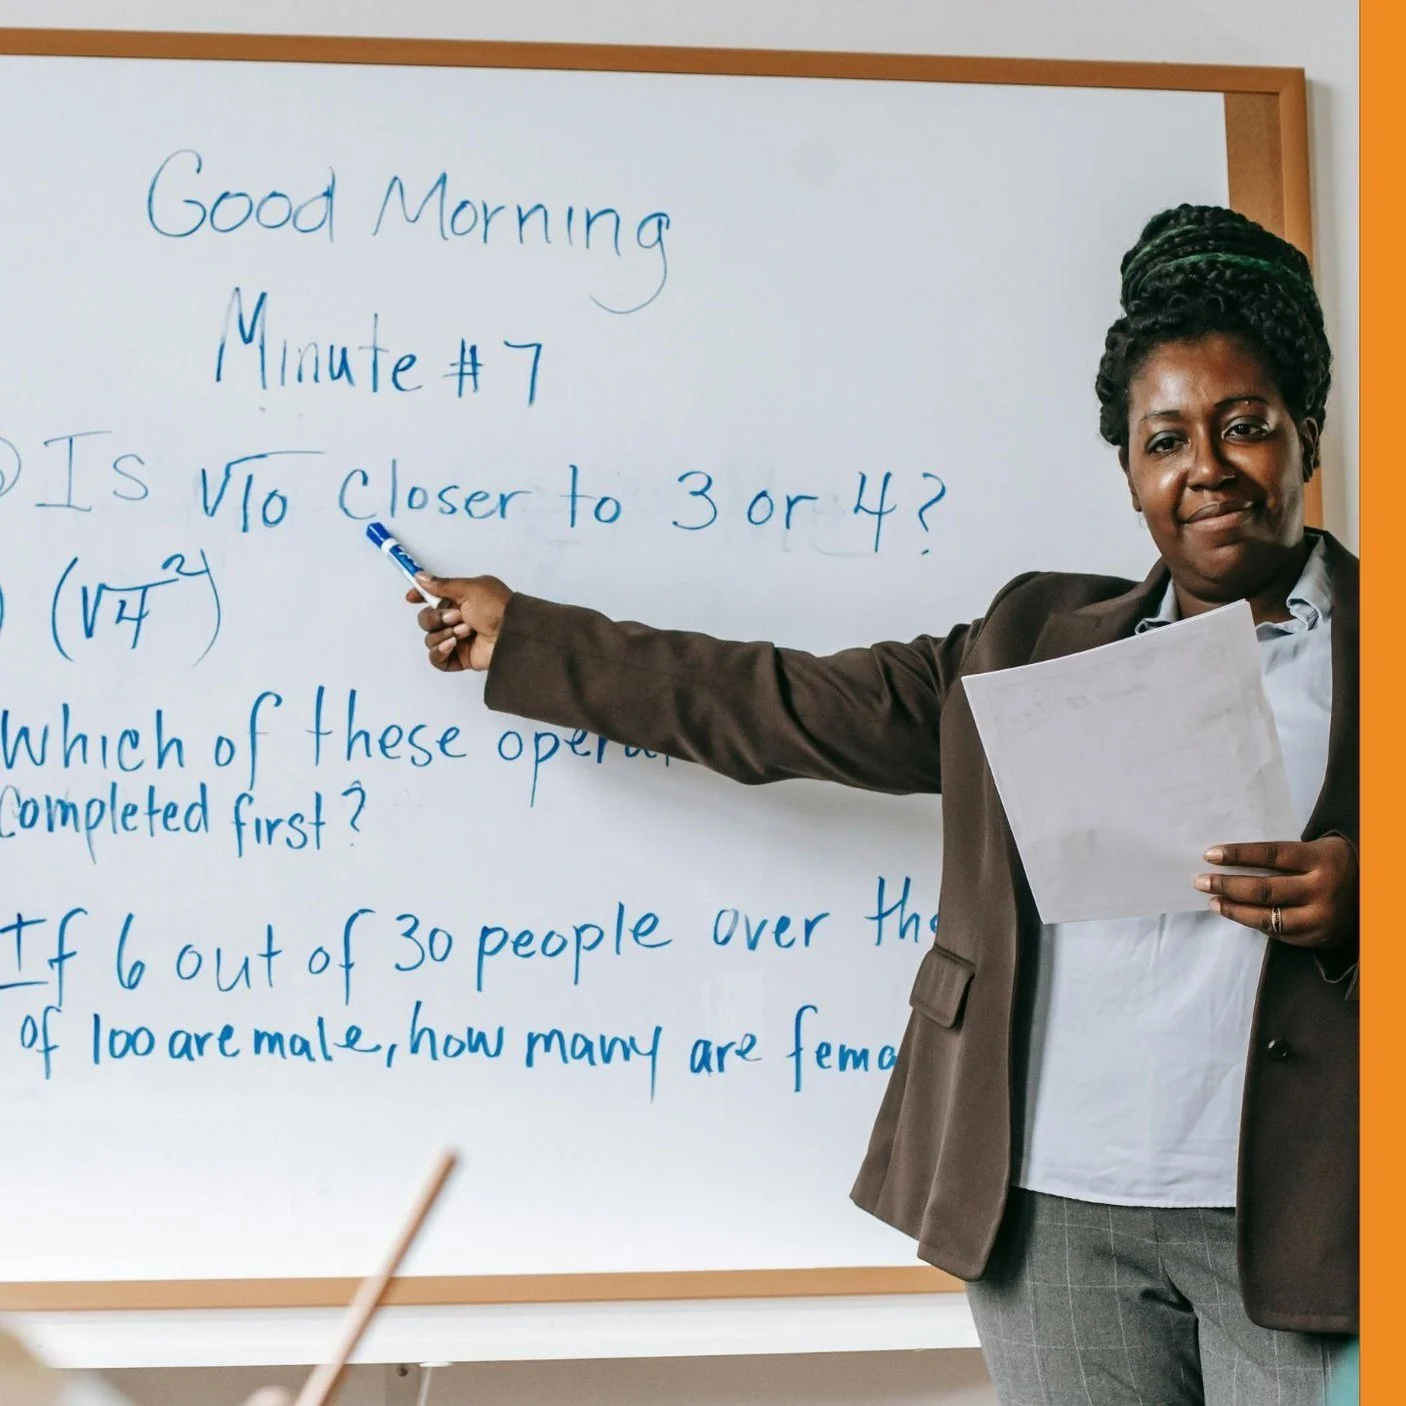 Good Morning
Minute #7
Is √10 closer to 3 or 4?
(√4²)
Which of these opera
completed first?
If 6 out of 30 people over the
of 100 are male, how many are fema